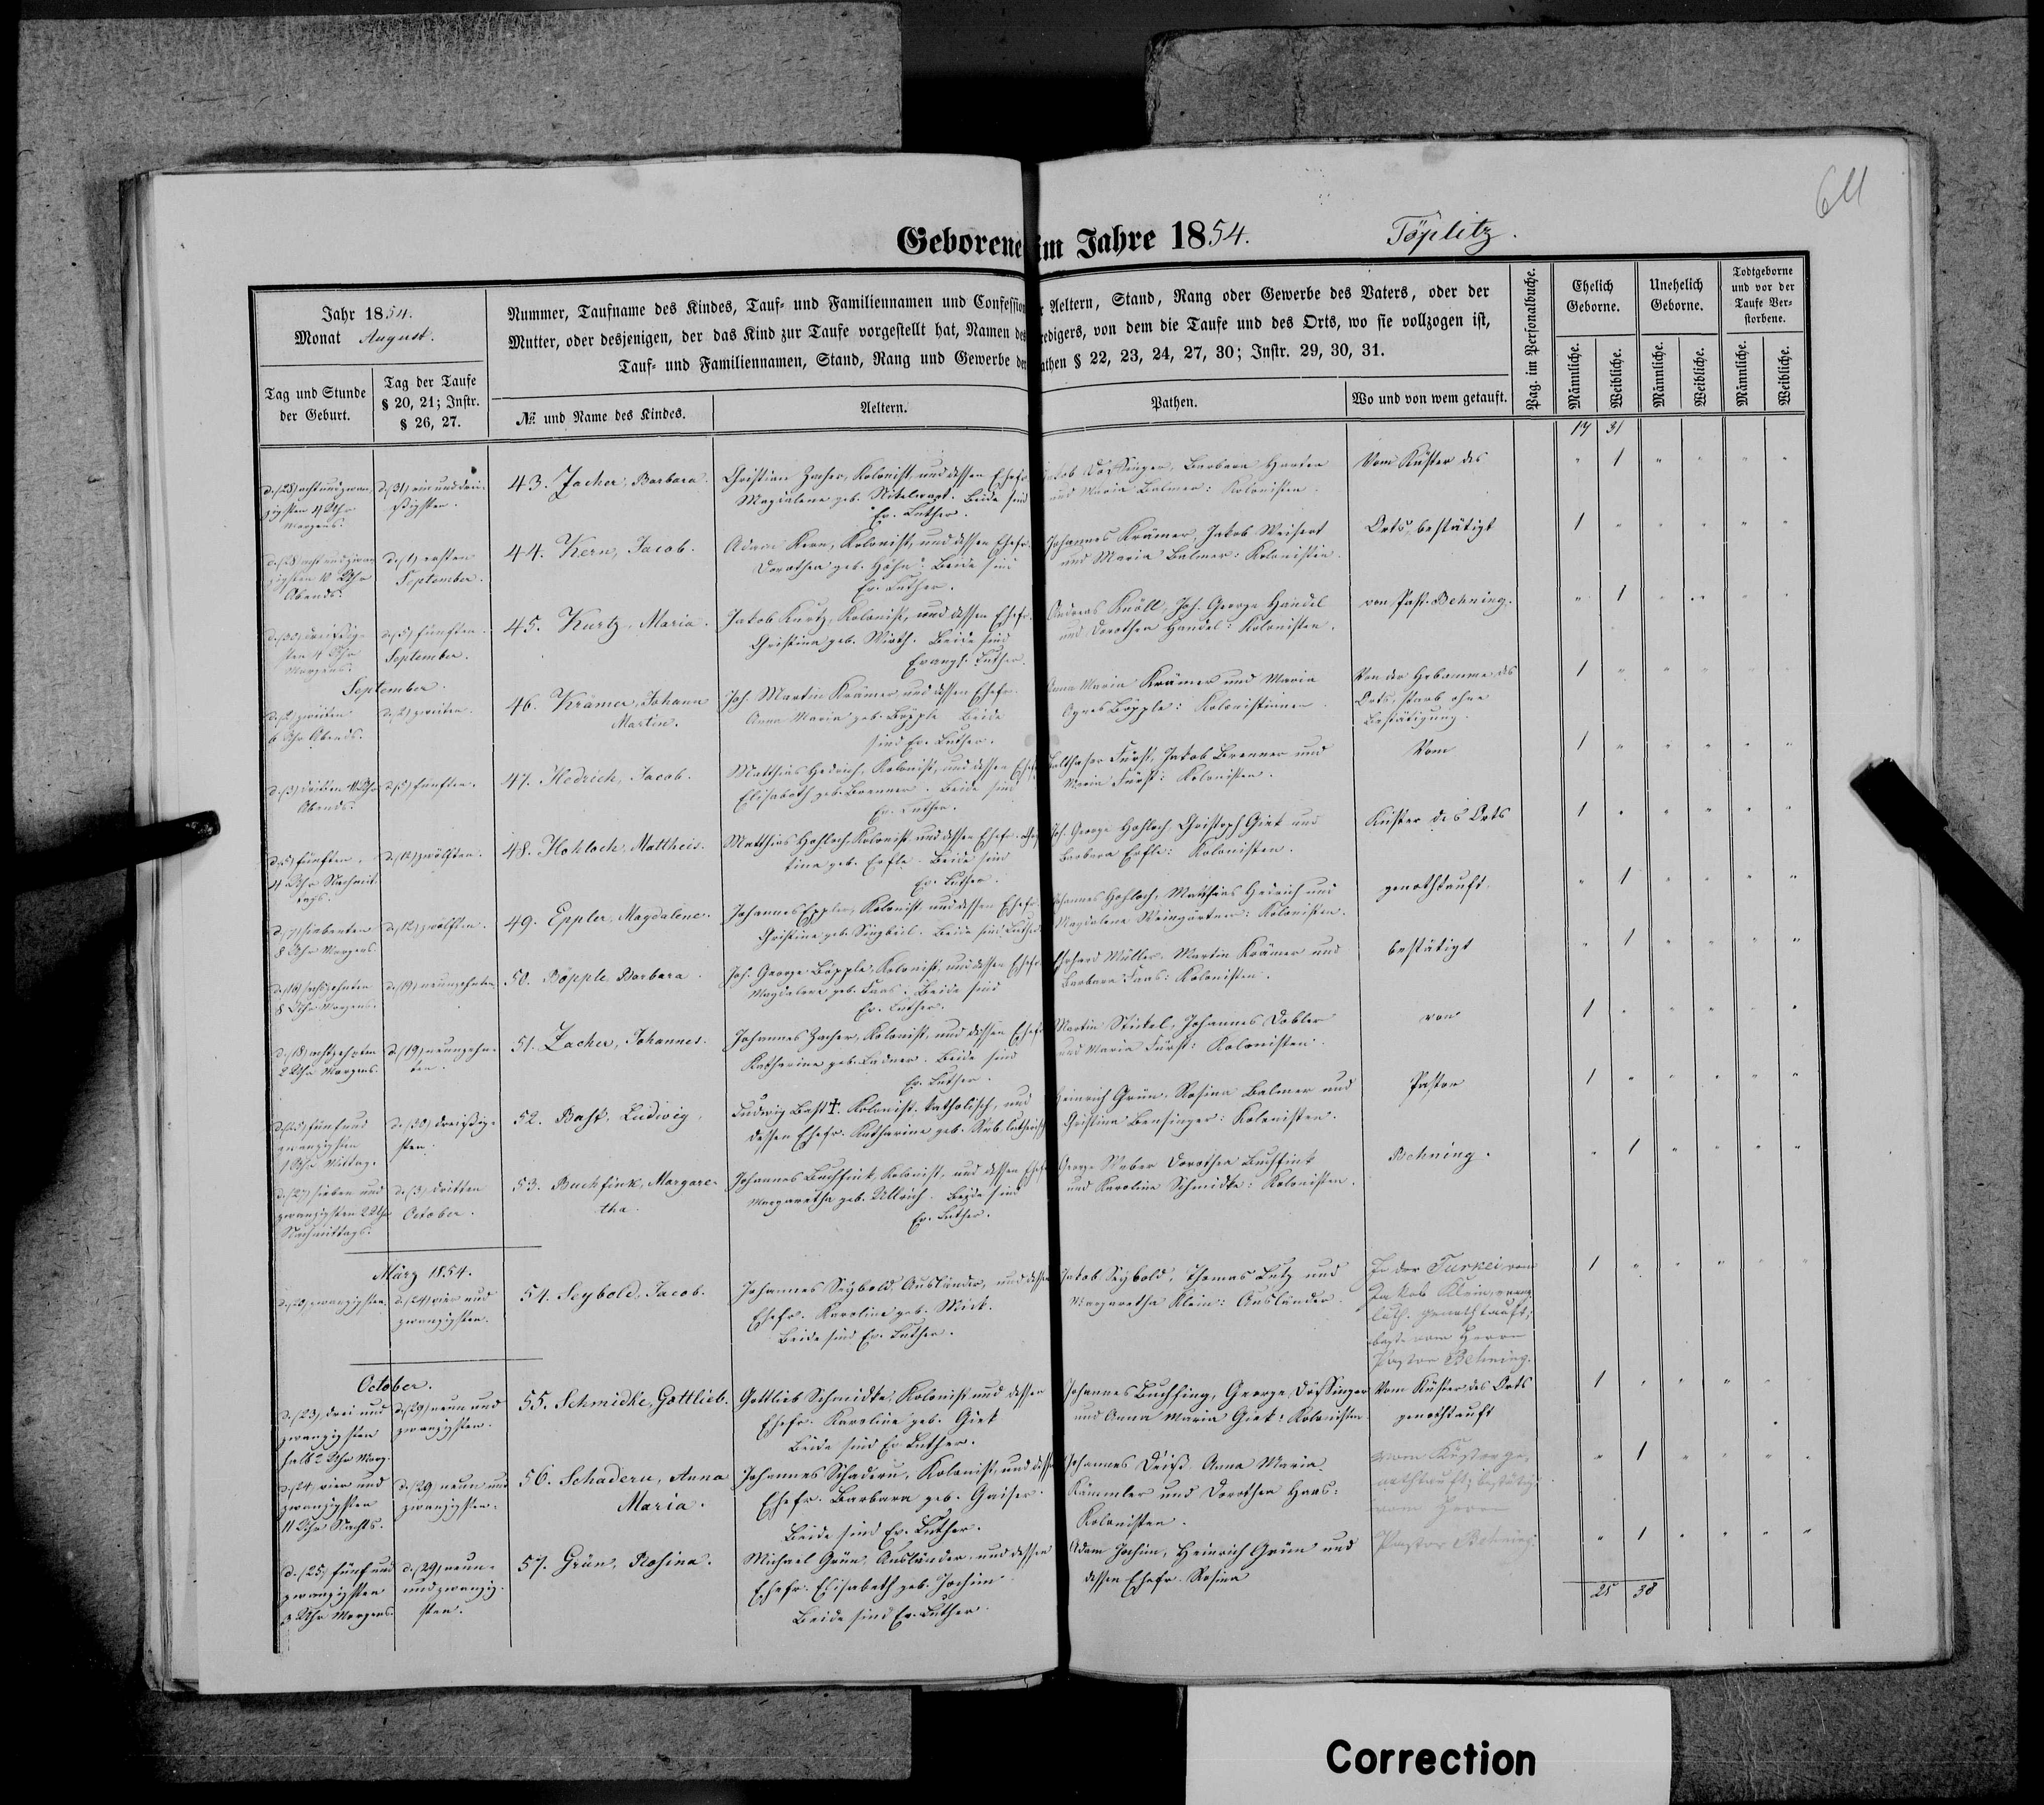 641
Geborene im Jahre 1854. Töplitz.
Jahr 1854.
Monat August.
Tag und Stunde der Geburt.
Tag der Taufe § 20, 21; Instr. § 26, 27.
Nummer, Taufname des Kindes, Tauf- und Familiennamen und Confession der Aeltern, Stand, Rang oder Gewerbe des Vaters, oder der
Mutter, oder desjenigen, der das Kind zur Taufe vorgestellt hat, Namen des Predigers, von dem die Taufe und des Orts, wo sie vollzogen ist,
Tauf- und Familiennamen, Stand, Rang und Gewerbe der Pathen § 22, 23, 24, 27, 30; Instr. 29, 30, 31.
№ und Name des Kindes.
Aeltern.
Pathen.
Wo und von wem getauft.
Pag. im Personalbuche.
Ehelich Geborne.
Unehelich Geborne.
Todtgeborne und vor der Taufe Verstorbene.
Männliche. Weibliche. Männliche. Weibliche. Männliche. Weibliche.
31
d. (28) acht und zwan-
zigsten 4 Uhr
Morgens.
d. (31) ein und drei-
ßigsten.
43. Zacher, Barbara.
Christian Zacher, Kolonist, und dessen Ehefr.
Magdalena geb. Beide sind
Ev. Luther.
Jakob Dössinger, Barbara
und Maria Balmer: Kolonisten.
Vom Küster des
1
d. (28) acht und zwan-
zigsten 10 Uhr
Abends.
d. (1) ersten
September.
44. Kern, Jacob.
Adam Kern, Kolonist, und dessen Ehefr.
Dorothea geb. Höhn. Beide sind
Ev. Luther.
Johannes Krämer, Jakob Weisert
und Maria Balmer: Kolonisten.
Orts, bestätigt
1
d. (30) dreißig-
sten 4 Uhr
Morgens.
d. (5) fünften
September.
45. Kurtz, Maria.
Jakob Kurtz, Kolonist, und dessen Ehefr.
Christina geb. Wirth. Beide sind
Evangl. Luther.
Andreas Knöll, Joh. George Handel
und Dorothea Handel: Kolonisten.
von Past. Behning.
1
September.
d. (2) zweiten
6 Uhr Abends.
d. (2) zweiten.
46. Krämer, Johann
Martin.
Joh. Martin Krämer und dessen Ehefr.
Anna Maria geb. Böpple Beide
sind Ev. Luther.
Anna Maria Krämer und Maria
Agnes Böpple: Kolonistinnen.
Von der Hebamme des
Orts, starb ohne
Bestätigung.
1
d. (3) dritten 11 Uhr
Abends.
d. (5) fünften.
47. Hedrich, Jacob.
Matthias Hedrich, Kolonist, und dessen Ehefr.
Elisabeth geb. Brenner. Beide sind
Ev. Luther.
Balthaser Fürst, Jakob Brenner und
Maria Fürst: Kolonisten.
Vom
1
d. (5) fünften.
4 Uhr Nachmit-
tags.
d. (12) zwölften.
48. Hohloch, Mattheis.
Matthias Hohloch, Kolonist und dessen Ehefr. Chris-
tina geb. Erfle. Beide sind
Ev. Luther.
Joh. George Hohloch, Christoph Giek und
Barbara Erfle: Kolonisten.
Küster des Orts
1
d. (7) siebenten
8 Uhr Morgens.
d. (12) zwölften.
49. Eppler, Magdalene.
Johannes Eppler, Kolonist, und dessen Ehefr.
Christine geb. Singbeil. Beide sind Luther.
Johannes Hohloch, Matthias Hedrich und
Magdalena Weingärtner: Kolonisten.
genothtauft,
1
d. (16) sechzehnten
8 Uhr Morgens.
d. (19) neunzehnten.
50. Böpple, Barbara.
Joh. George Böpple, Kolonist, und dessen Ehefr.
Magdalena geb. Faas. Beide sind
Ev. Luther.
Ehrhard Müller, Martin Krämer und
Barbara Faas: Kolonisten.
bestätigt
1
d. (18) achtzehnten
2 Uhr Morgens.
d. (19) neunzehn-
ten.
51. Zacher, Johannes.
Johannes Zacher, Kolonist, und dessen Ehefr.
Katharina geb. Ladner. Beide sind
Ev. Luther.
Martin Stickel, Johannes Dobler
und Maria Fürst: Kolonisten.
von
1
d. (25) fünf und
zwanzigsten
1 Uhr Mittag.
d. (30) dreißig-
sten.
52. Bast, Ludwig.
Ludwig Bast †. Kolonist, katholisch, und
dessen Ehefr. Katharina geb. lutherisch
Heinrich Grün, Rosina Balmer und
Christina Bensinger: Kolonisten.
Pastor
1
d. (27) sieben und
zwanzigsten 2 Uhr
Nachmittags.
d. (3) dritten
October.
53. Buchfink, Margare-
tha.
Johannes Buchfink, Kolonist, und dessen Ehefr.
Margaretha geb. Ullrich. Beide sind
Ev. Luther.
George Weber, Dorothea Buchfink
und Karolina Schmidke: Kolonisten.
Behning.
1
März 1854.
d. (20) zwanzigsten.
d. (24) vier und
zwanzigsten.
54. Seybold, Jacob.
Johannes Seybold, Ausländer, und dessen
Ehefr. Karoline geb. Mick.
Beide sind Ev. Luther.
Jakob Seybold, Thomas Lutz und
Margaretha Klein: Ausländer.
In der Turkei von
Jakob Klein, evang.
luth. genothtauft;
vom Herrn
Pastor Behning.
1
October.
d. (23) drei und
zwanzigsten
halb 2 Uhr Morg.
d. (29) neun und
zwanzigsten.
55. Schmidke, Gottlieb.
Gottlieb Schmidke, Kolonist und dessen
Ehefr. Karoline geb. Giek
Beide sind Ev. Luther.
Johannes Buchfing, George Dössinger
und Anna Maria Giek: Kolonisten.
Vom Küster des Orts
genothtauft
1
d. (24) vier und
zwanzigsten
11 Uhr Nachts.
d. (29) neun und
zwanzigsten.
56. Schaderu, Anna
Maria.
Johannes Schaderu, Kolonist, und dessen
Ehefr. Barbara geb. Gaiser.
Beide sind Ev. Luther.
Johannes Deiß, Anna Maria
Kämmler und Dorothea Haas:
Kolonisten.
vom Küster ge-
nothtauft; bestätig.
vom Herrn
Pastor Behning.
1
d. (25) fünf und
zwanzigsten
3 Uhr Morgens.
d. (29) neun-
und zwanzig-
sten.
57. Grün, Rosina.
Michael Grün, Ausländer und dessen
Ehefr. Elisabeth geb. Jochim
Beide sind Ev. Luther.
Adam Jochim, Heinrich Grün und
dessen Ehefr. Rosina
1
25 38
Correction